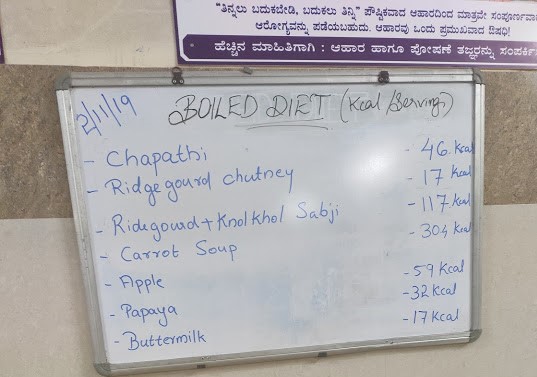 “ತಿನ್ನಲು ಬದುಕಬೇಡಿ, ಬದುಕಲು ತಿನ್ನಿ” ಪೌಷ್ಟಿಕವಾದ ಆಹಾರದಿಂದ ಮಾತ್ರವೇ ಸಂಪೂರ್ಣವಾದ
ಆರೋಗ್ಯವನ್ನು ಪಡೆಯಬಹುದು. ಆಹಾರವು ಒಂದು ಪ್ರಮುಖವಾದ ಔಷಧಿ!
ಹೆಚ್ಚಿನ ಮಾಹಿತಿಗಾಗಿ : ಆಹಾರ ಹಾಗೂ ಪೋಷಣೆ ತಜ್ಞರನ್ನು ಸಂಪರ್ಕಿಸಿ
2/11/19
BOILED DIET (Kcal/Serving)
- Chapathi - 46 Kcal
- Ridgegourd chutney - 17 Kcal
- Ridegourd + Knolkhol Sabji - 117 Kcal
- Carrot Soup - 304 Kcal
- Apple - 59 Kcal
- Papaya - 32 Kcal
- Buttermilk - 17 Kcal